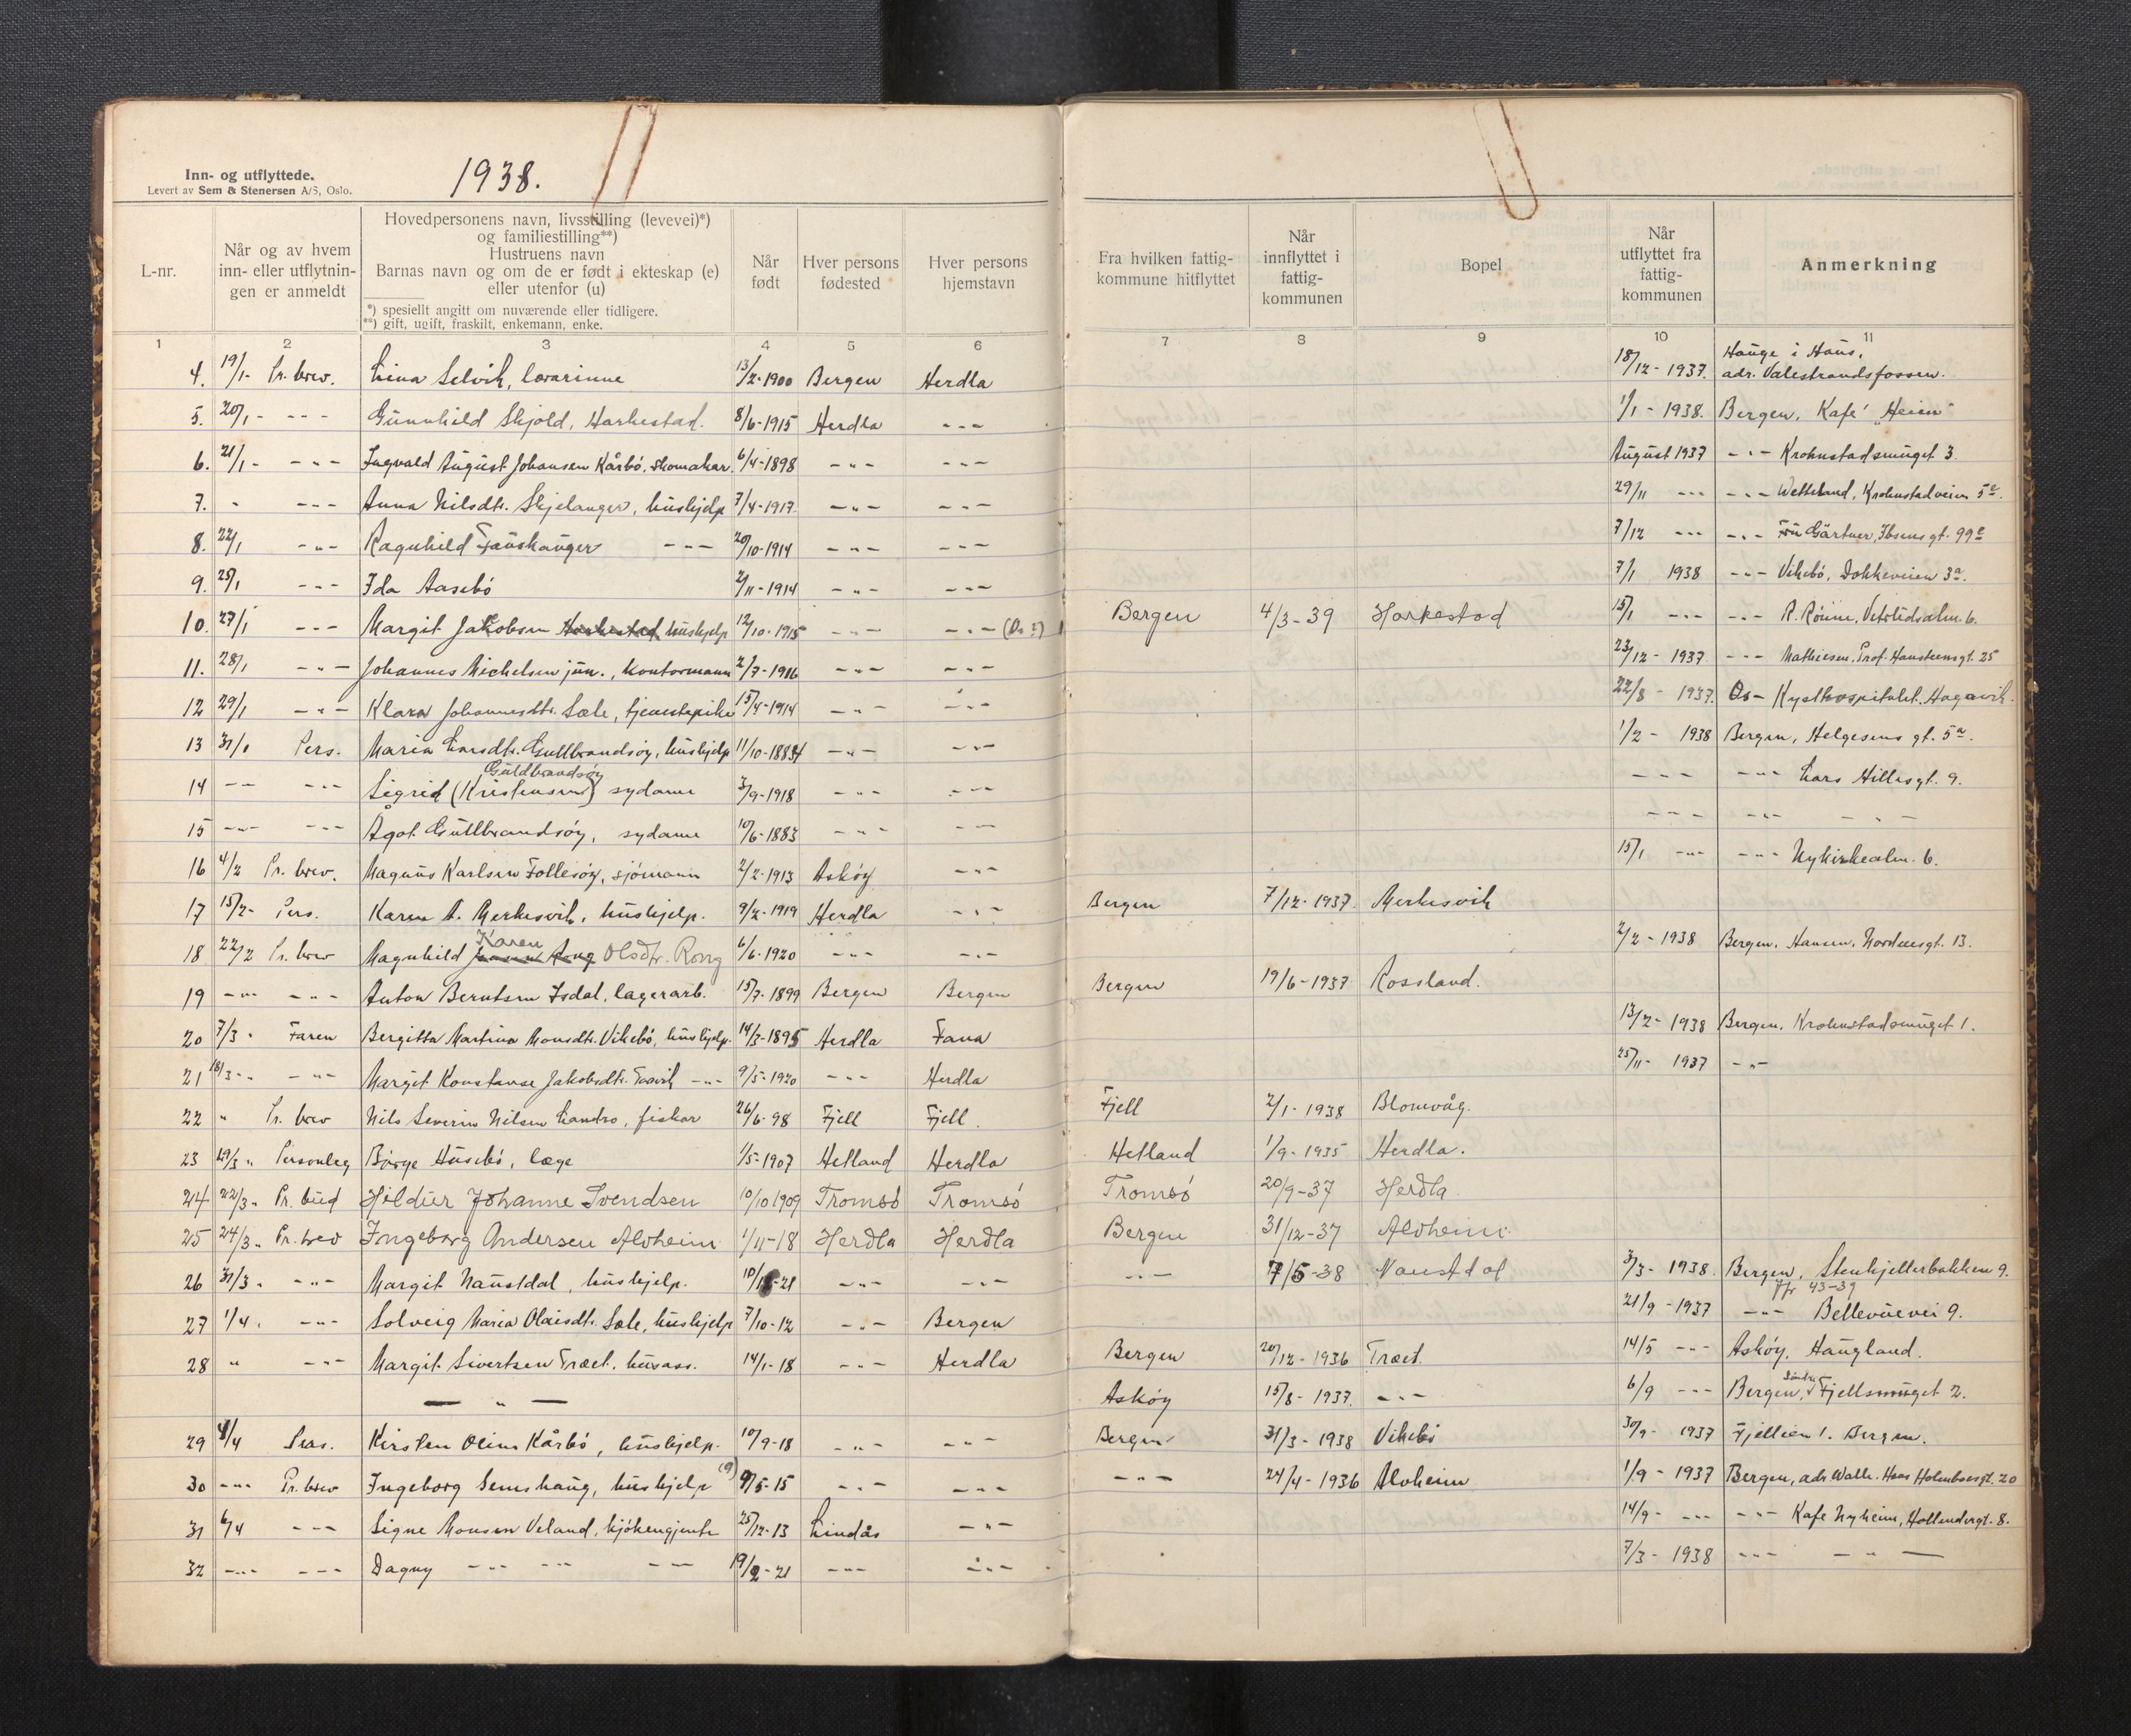 Inn- og utflyttede.
Levert av Sem & Stenersen A/S, Oslo.
1938.
L-nr.
Når og av hvem inn- eller utflytnin- gen er anmeldt
Hovedpersonens navn, livsstilling (levevei)*)
og familiestilling**)
Hustruens navn
Barnas navn og om de er født i ekteskap (e)
eller utenfor (u)
*) spesielt angitt om nuværende eller tidligere.
**) gift, ugift, fraskilt, enkemann, enke.
Når født
Hver persons fødested
Hver persons hjemstavn
Fra hvilken fattig- kommune hitflyttet
Når innflyttet i fattig- kommunen
Bopel
Når utflyttet fra fattig- kommunen
Anmerkning
1 2 3 4 5 6 7 8 9 10 11
4. 19/1- Pr. brev. Lina Selvik, lærarinne 13/2-1900 Bergen Herdla 18/12-1937. Hauge i Haus, adr. Valestrandsfossen.
5. 20/1- -"- Gunnhild Skjold, Harkestad. 8/6-1915 Herdla -"- 1/1-1938. Bergen, Kafe' "Heien"
6. 21/1- -"- Ingvald August Johansen Kårbö, skomakar. 6/4-1898 -"- -"- August 1937 -"- Krohnstadsmuget 3.
7. " -"- Anna Nilsdtr. Skjelanger, hushjelp 7/4-1917. -"- -"- 29/11 -"- -"- Wetteland, Krohnstadveien 5a.
8. 22/1 -"- Ragnhild Fauskanger -"- 20/10-1914 -"- -"- 7/12 -"- -"- Fru Gärtner, Ibsens gt. 99c
9. 25/1 -"- Ida Aasebö 2/11-1914 -"- -"- 7/1 1938 -"- Vikebö, Dokkeveien 3a.
10. 27/1 -"- Margit Jakobsen Harkestad hushjelp 12/10-1915 -"- -"- (Os?) Bergen 4/3-39 Harkestad 15/1 -"- -"- R. Rönne, Vetrlidsalm. 6.
11. 28/1 -"- Johannes Michelsen jun., kontormann 2/7-1916 -"- -"- 23/12-1937 -"- Mathiesen, Prof. Hansteensgt. 25
12 29/1 -"- Klara Johannesdtr. Sæle, tjenestepike 15/4-1914 -"- -"- 22/8-1937. Os- Kysthospitalet. Hagavik.
13 31/1 Pers. Maria Larsdtr. Gullbrandsöy, hushjelp 11/10-1884 -"- -"- 1/2-1938 Bergen, Helgesens gt. 5a.
14 -"- -"- Sigrid (Kristensen) Guldbrandsöy sydame 3/9-1918 -"- -"- -"- -"- Lars Hillesgt. 9.
15 -"- -"- Ågot Gullbrandsöy, sydame 10/6-1883 -"- -"- -"- -"- -"-
16 4/2 Pr. brev. Magnus Karlsen Follesöy, sjömann 2/2-1913 Asköy -"- 15/1 -"- -"- Nykirkealm. 6.
17 15/2- Pers. Karen A. Merkesvik, hushjelp. 9/2-1919 Herdla -"- Bergen 7/12-1937. Merkesvik
18 22/2 Pr. brev Magnhild Karen Rong Olsdtr. Rong 6/6-1920 -"- -"- 2/2-1938 Bergen, Hansen, Nordnesgt. 13.
19 -"- -"- Anton Berntsen Isdal, lagerarb. 15/7-1899 Bergen Bergen Bergen 19/6-1937 Rossland.
20 7/3 " Faren Bergitta Martina Monsdtr. Vikebö, hushjelp. 14/3-1895 Herdla Fana 13/2-1938 Bergen, Krohnstadsmuget 1.
21 18/3 -"- -"- Margit Konstanse Jakobsdtr. Toovik -"- 9/5-1920 -"- Herdla 25/11-1937 -"-
22 " Pr. brev Nils Severin Nilsen Landro, fiskar 26/6-98 Fjell Fjell. Fjell 2/1-1938 Blomvåg.
23 19/3 " Personleg Börge Husebö, læge 1/5-1907 Hetland Herdla Hetland 1/9-1935 Herdla.
24 22/3 " Pr. bud Hildur Johanne Svendsen 10/10 1909 Tromsö Tromsö Tromsö 20/9-37 Herdla.
25 24/3 " Pr. brev Ingeborg Andersen Alvheim 1/11-18 Herdla Herdla Bergen 31/12-37 Alvheim.
26 31/3 " -"- Margit Naustdal, hushjelp. 10/11-21 -"- -"- -"- 7/5-38 Naustdal 3/3-1938. Bergen, Stenkjellerbakken 9.
Jfr 43-39
27 1/4 " -"- Solveig Maria Olaisdtr. Sæle, hushjelp 7/10-12 -"- Bergen 21/9-1937 -"- Bellevuevei 9.
28 " -"- Margit Sivertsen Træet, husass. 14/1-18 -"- Herdla Bergen 20/12-1936 Træet. 14/5 -"- Asköy, Haugland.
— " — Asköy 15/8-1937. -"- 6/9 -"- Bergen, Söndre Fjellsmuget 2.
29 4/4 Pers. Kirsten Oline Kårbö, hushjelp. 10/9-18 -"- -"- Bergen 31/3-1938 Vikebö 30/9-1937 Fjellien 1. Bergen.
30 -"- Pr. brev Ingeborg Semshaug, hushjelp (9) 9/5-15 -"- -"- -"- 24/4-1936 Alvheim 1/9-1937 Bergen, adr. Walle. Hans Holmboesgt. 20
31 6/4 -"- Signe Monsen Veland, kjökengjente 25/12-13 Lindås -"- 14/9- -"- -"- Kafe Nyheim, Hollendergt. 8.
32 -"- -"- Dagny -"- -"- -"- 19/2-21 -"- -"- 7/3-1938 -"- — " —